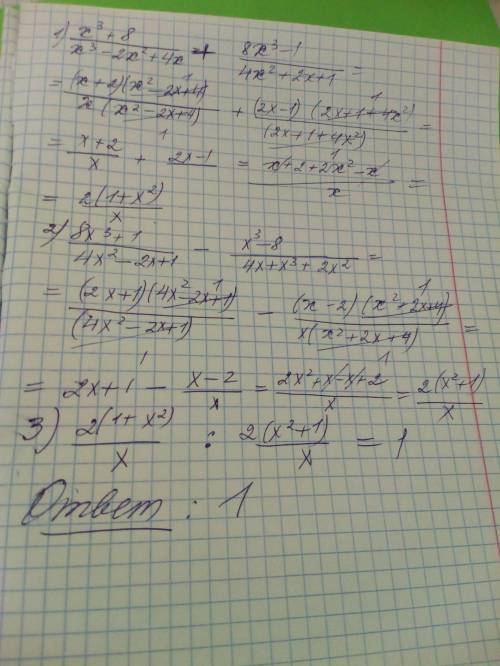 1) (x³+8)/(x³-2x²+4x) + (8x³-1)/(4x²+2x+1) =
= (x+2)(x²-2x+4)/x(x²-2x+4) + (2x-1)(2x+1+4x²)/(2x+1+4x²) =
= (x+2)/x + 2x-1 = (x+2+2x²-x)/x =
= 2(1+x²)/x
2) (8x³+1)/(4x²-2x+1) - (x³-8)/(4x+x³+2x²) =
= (2x+1)(4x²-2x+1)/(4x²-2x+1) - (x-2)(x²+2x+4)/x(x²+2x+4) =
= 2x+1 - (x-2)/x = (2x²+x-x+2)/x = 2(x²+1)/x
3) 2(1+x²)/x : 2(x²+1)/x = 1
Ответ: 1